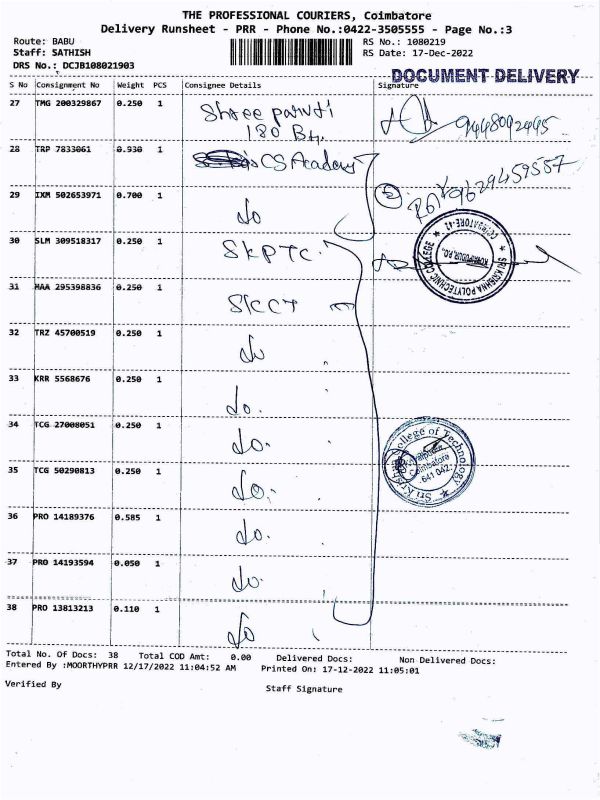 THE PROFESSIONAL COURIERS, Coimbatore
Delivery Runsheet - PRR - Phone No.:0422-3505555 - Page No.:3
Route: BABU
RS No.: 1080219
Staff: SATHISH
RS Date: 17-Dec-2022
DRS No.: DCJB108021903
DOCUMENT DELIVERY
S No Consignment No Weight PCS Consignee Details Signature
27 TMG 200329867 0.250 1 Shree parvti
180 9448092445
28 TRP 7833061 0.930 1 CS Academy
9629459557
29 IXM 502653971 0.700 1 do
30 SLM 309518317 0.250 1 SKPTC.
SRI KRISHNA POLYTECHNIC COLLEGE ★ COIMBATORE-42 ★
KOVAIPUDUR.PO.,
31 MAA 295398836 0.250 1 SKCT
32 TRZ 45700519 0.250 1 do
33 KRR 5568676 0.250 1 do.
34 TCG 27008051 0.250 1 do.
Sri Krishna College of Technology ★
Coimbatore
641 042.
35 TCG 50290813 0.250 1 do.
36 PRO 14189376 0.585 1 do.
37 PRO 14193594 0.050 1 do.
38 PRO 13813213 0.110 1 do
Total No. Of Docs: 38 Total COD Amt: 0.00 Delivered Docs: Non Delivered Docs:
Entered By :MOORTHYPRR 12/17/2022 11:04:52 AM Printed On: 17-12-2022 11:05:01
Verified By
Staff Signature